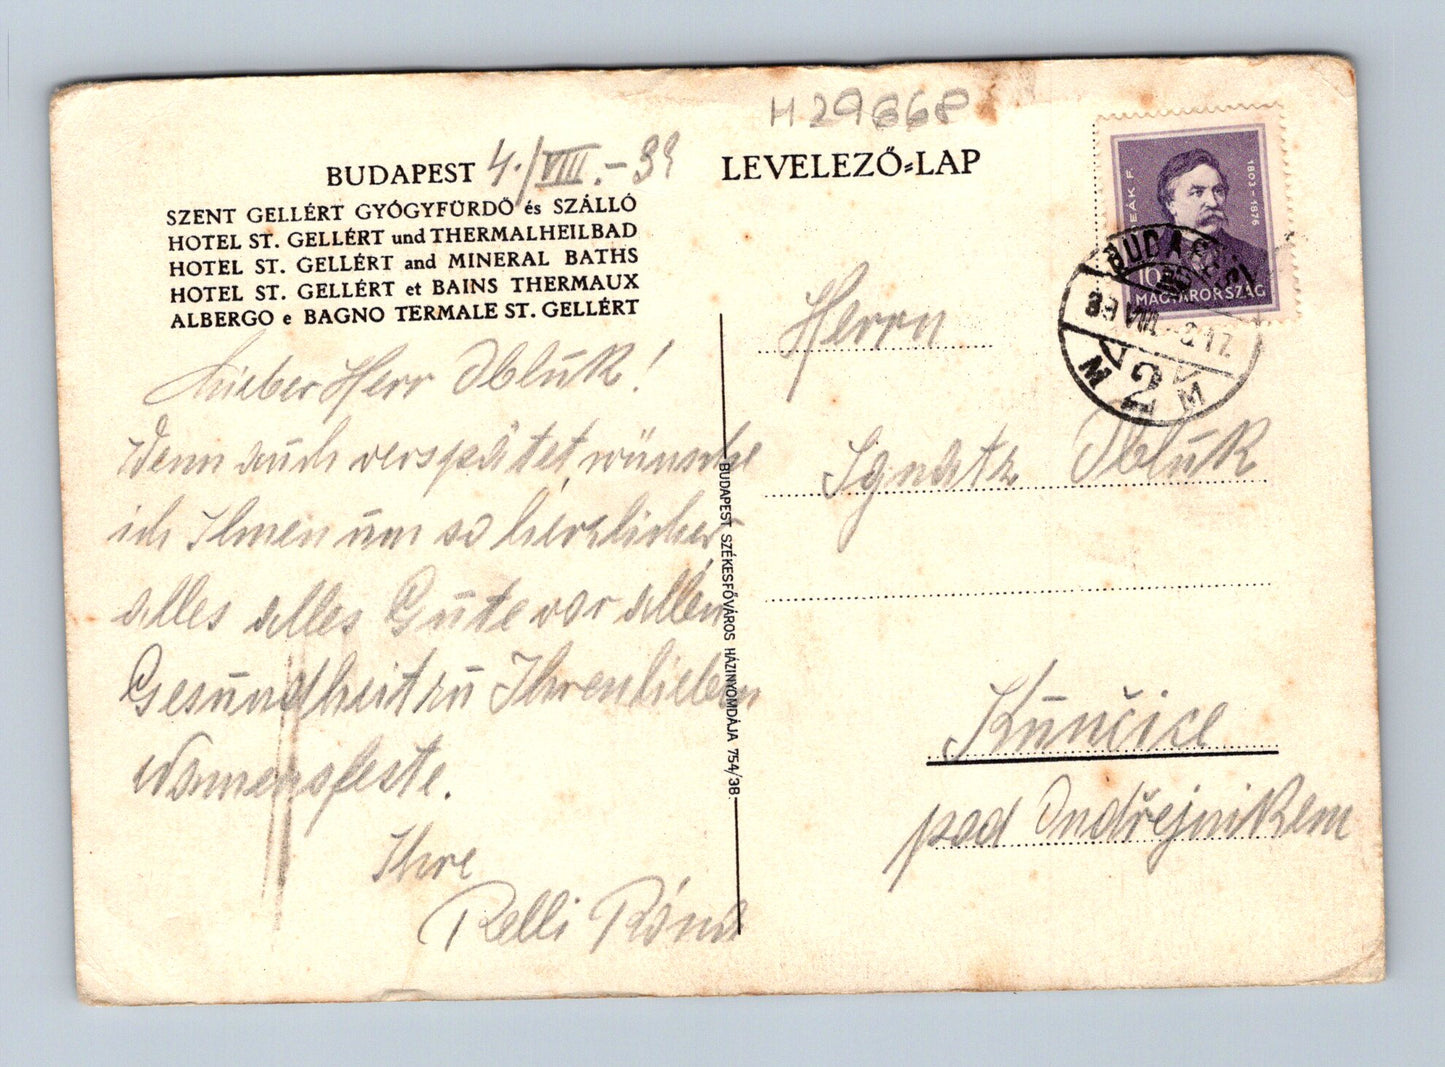 H29868
BUDAPEST 4./VIII.-39
SZENT GELLÉRT GYÓGYFÜRDŐ és SZÁLLÓ
HOTEL ST. GELLÉRT und THERMALHEILBAD
HOTEL ST. GELLÉRT and MINERAL BATHS
HOTEL ST. GELLÉRT et BAINS THERMAUX
ALBERGO e BAGNO TERMALE ST. GELLÉRT
Lieber Herr Obluk!
Wenn auch verspätet wünsche
ich Ihnen um so herzlicher
alles alles Gute vor allem
Gesundheit zu Ihrem lieben
Namensfeste.
Ihre
Relli Róna
BUDAPEST SZÉKESFŐVÁROS HÁZINYOMDÁJA 754/38.
LEVELEZŐ-LAP
DEÁK F.
1803-1876
10
MAGYARORSZÁG
BUDAPEST
Herrn
Ignatz Obluk
Kunčice
pod Ondřejnikem